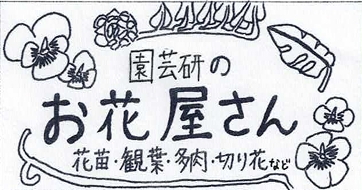 園芸研の
お花屋さん
花苗・観葉・多肉・切り花など